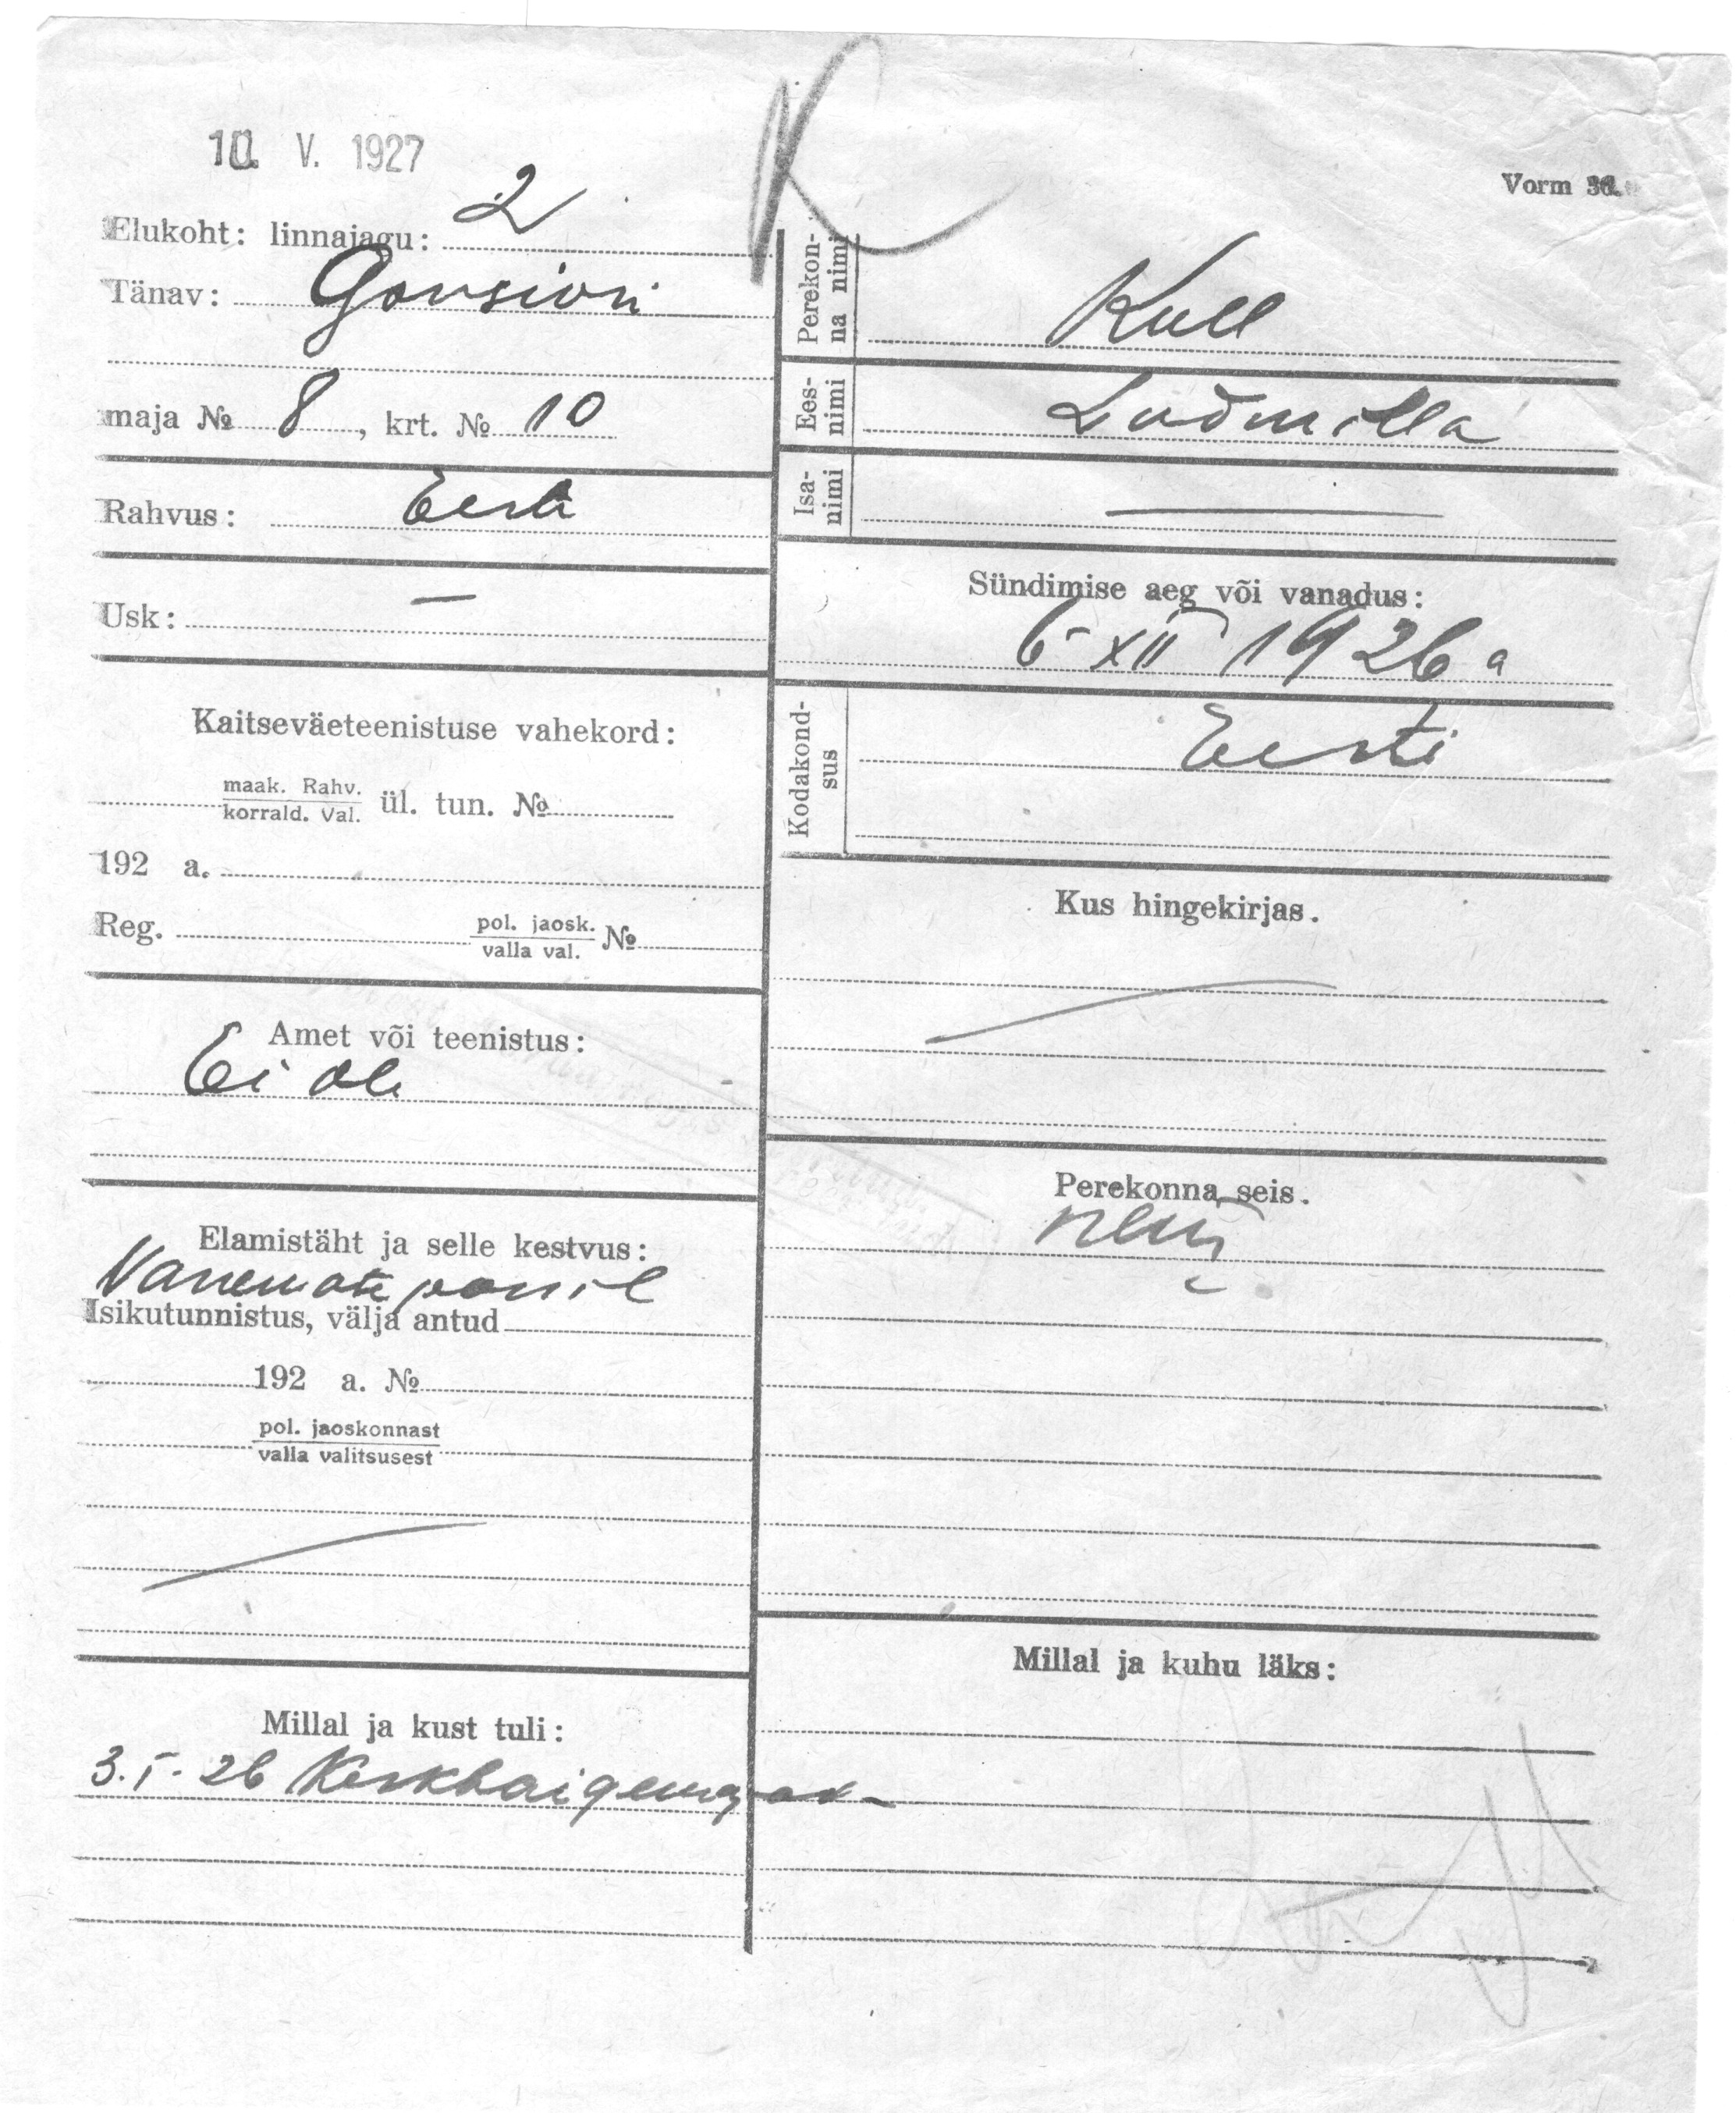 10. V. 1927
K
Vorm
Elukoht: linnajagu: 2
Tänav: Gonsiori
maja № 8, krt. № 10
Rahvus: Eesti
Usk: —
Kaitseväeteenistuse vahekord:
maak. Rahv.
korrald. Val. ül. tun. №
192 a.
Reg. pol. jaosk.
valla val. №
Amet või teenistus:
Ei ole
Elamistäht ja selle kestvus:
Vanemate
Isikutunnistus, välja antud
192 a. №
pol. jaoskonnast
valla valitsusest
Millal ja kust tuli:
3. I. 26
Perekon-
na nimi Kull
Ees-
nimi Ludmilla
Isa-
nimi —
Sündimise aeg või vanadus:
6 XII 1926 a
Kodakond-
sus Eesti
Kus hingekirjas.
Perekonna seis.
neiu
Millal ja kuhu läks: